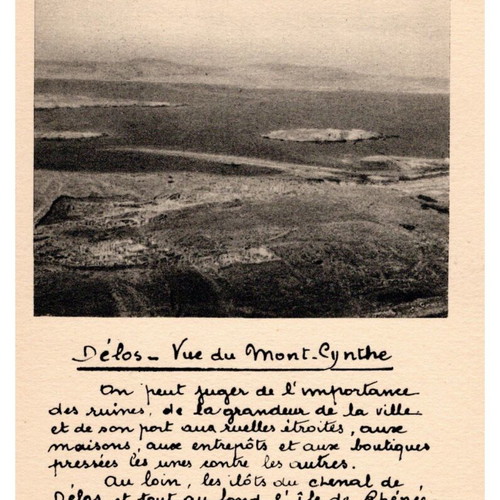 Délos - Vue du Mont-Cynthe
On peut juger de l'importance
des ruines, de la grandeur de la ville
et de son port aux ruelles étroites, aux
maisons, aux entrepôts et aux boutiques
pressées les unes contre les autres.
Au loin, les îlots du chenal de
Délos et tout au fond l'île de Rhénée